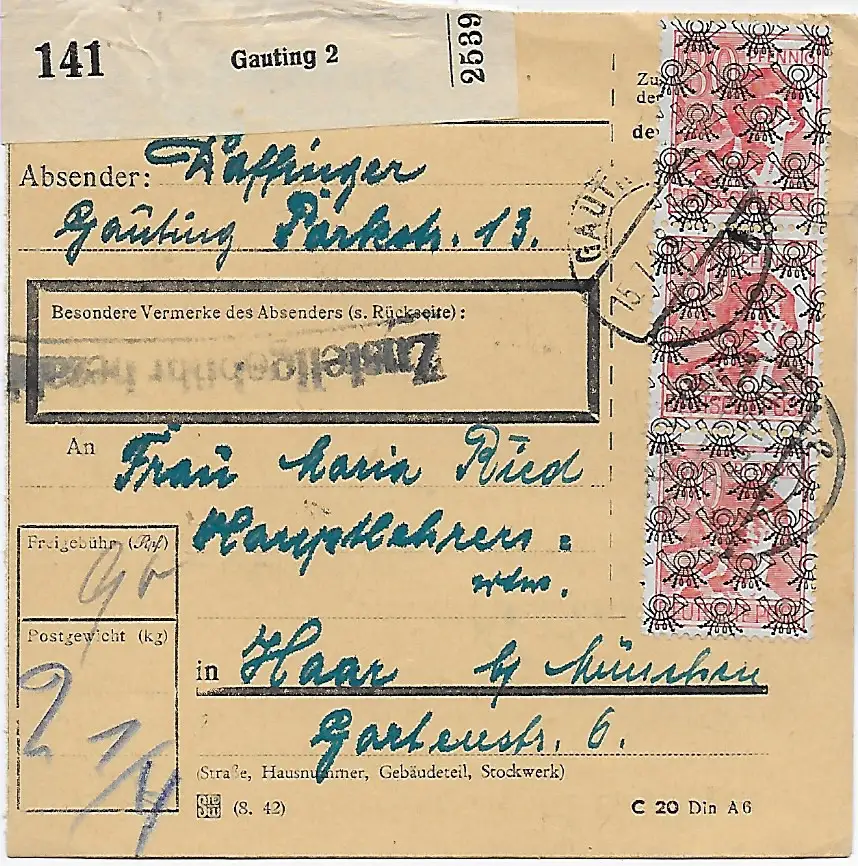 141
Gauting 2
2539
Zu
de
de
Absender: Daffinger
Gauting Parkstr. 13.
GAUT
15.7.
b
Besondere Vermerke des Absenders (s. Rückseite):
Zustellgebühr bezahlt
An Frau Maria Ried
Hauptlehrers =
wtw.
Freigebühr (Rpf)
90
Postgewicht (kg)
2 1/4
in Haar b/ München
Gartenstr. 6.
(Straße, Hausnummer, Gebäudeteil, Stockwerk)
(8. 42)
C 20 Din A6
30 PFENNIG
DEUTSCHE POST
PFENNIG